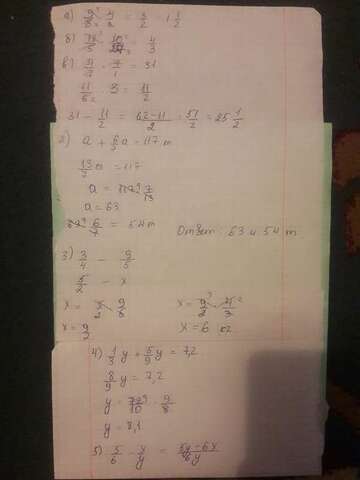 а) 9/8 · 4/3 = 3/2 = 1 1/2
б) · 10/27 = 4/3
в) 31/7 · 7/1 = 31
11/6 · 3 = 11/2
31 - 11/2 = 62-11/2 = 51/2 = 25 1/2
2) a + 6/7 a = 117 m
13/7 a = 117
a = 117 · 7/13
a = 63
6/7 = 54 m
Ответ: 63 и 54 m
3) 3/4 - 9/5
5/2 - x
x = 9/2 · 4/3
x = 9/2
x = 6 кг
4) 1/3 y + 5/9 y = 7,2
8/9 y = 7,2
y = 72/10 · 9/8
y = 8,1
5) 5/6 - x/y = 5y - 6x/6y